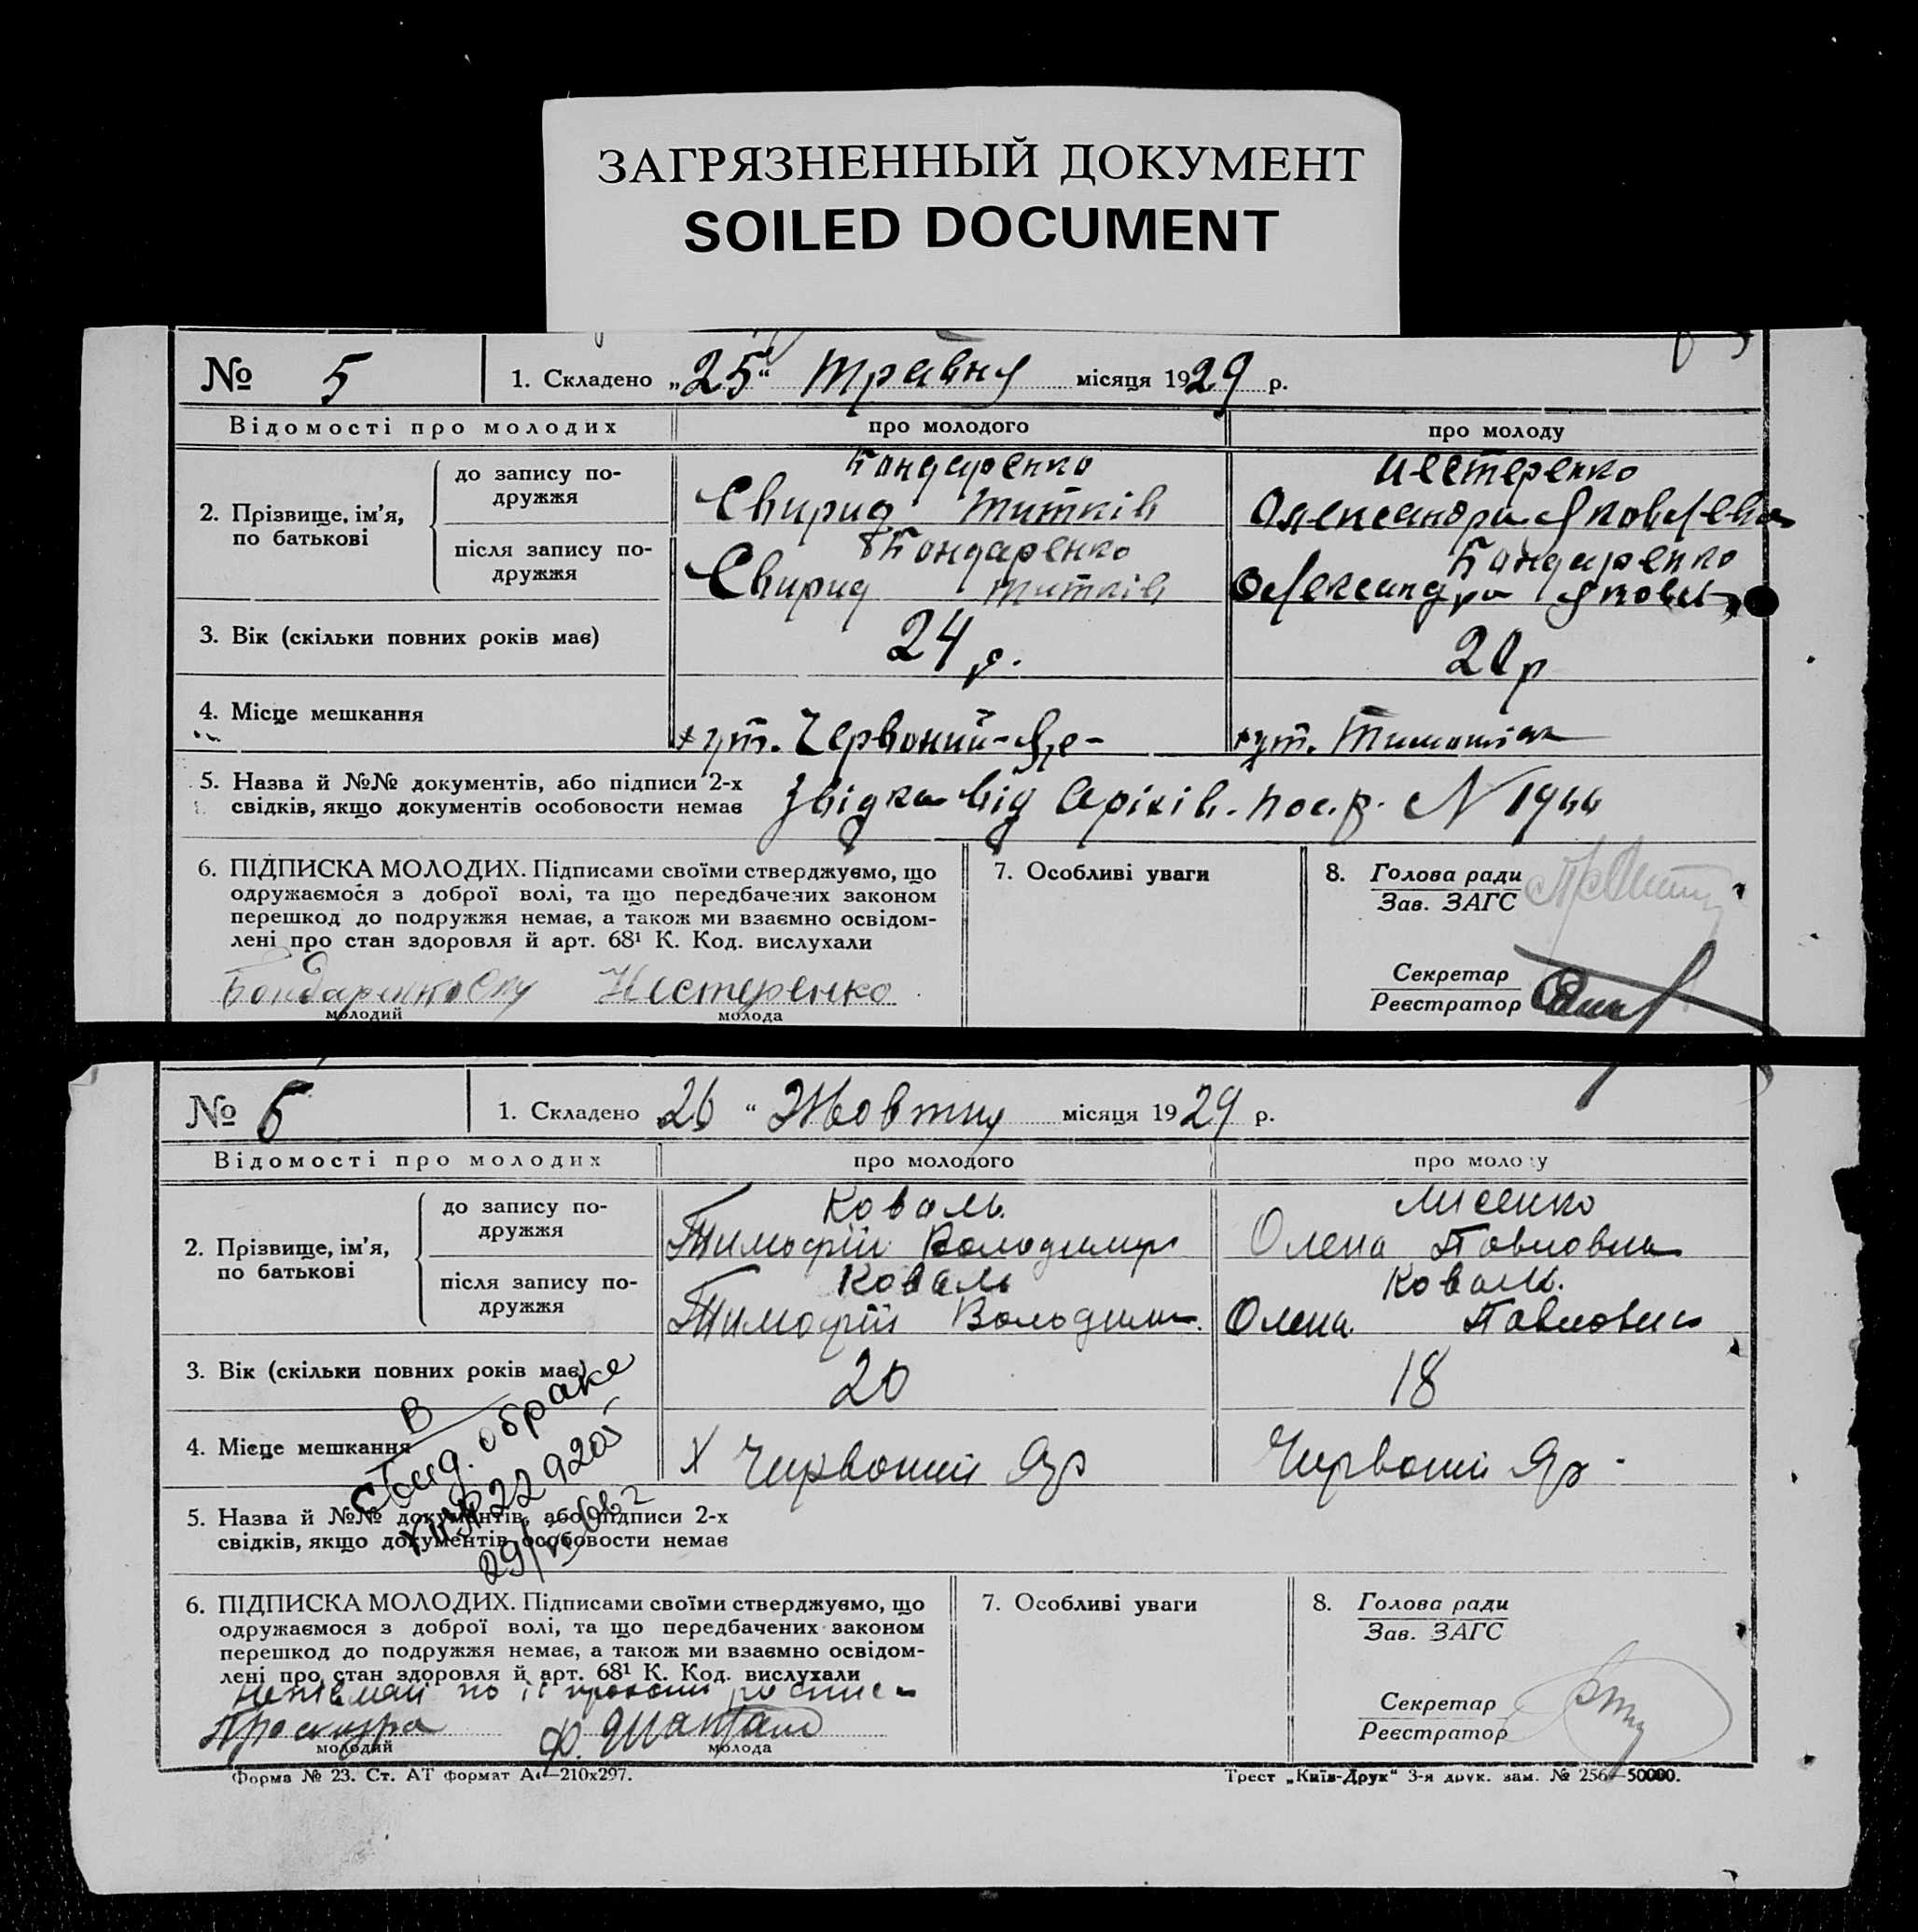 ЗАГРЯЗНЕННЫЙ ДОКУМЕНТ
SOILED DOCUMENT
№ 5 1. Складено „25“ травня місяця 1929 р.
Відомості про молодих про молодого про молоду
2. Прізвище, ім’я, по батькові
до запису подружжя
Бондаренко
Свирид Титків
Нестеренко
Олександра Яковлевна
після запису подружжя
Бондаренко
Свирид Титків
Бондаренко
Олександра Яковл
3. Вік (скільки повних років має) 24 р. 20 р
4. Місце мешкання хут. Червоний-Яр- хут.
5. Назва й №№ документів, або підписи 2-х
свідків, якщо документів особовости немає
Звідка від N 1944
6. ПІДПИСКА МОЛОДИХ. Підписами своїми стверджуємо, що
одружаємося з доброї волі, та що передбачених законом
перешкод до подружжя немає, а також ми взаємно освідом-
лені про стан здоровля й арт. 68¹ К. Код. вислухали
Бондаренко Нестеренко
молодий молода
7. Особливі уваги
8. Голова ради
Зав. ЗАГС
Секретар
Реєстратор
№ 6 1. Складено 26 “ Жовтня місяця 1929 р.
Відомості про молодих про молодого про молоду
2. Прізвище, ім’я,
по батькові
до запису по-
дружжя
Коваль
Тимофій Володимир
Лисенко
Олена Павловна
після запису по-
дружжя
Коваль
Тимофій Володим.
Коваль.
Олена Павловна
3. Вік (скільки повних років має) 20 18
4. Місце мешкання х Червоний Яр Червоний Яр
5. Назва й №№ документів, або підписи 2-х
свідків, якщо документів особовости немає
В
свид. о браке
229205
6. ПІДПИСКА МОЛОДИХ. Підписами своїми стверджуємо, що
одружаємося з доброї волі, та що передбачених законом
перешкод до подружжя немає, а також ми взаємно освідом-
лені про стан здоровля й арт. 68¹ К. Код. вислухали
по її
Проскура
молодий молода
7. Особливі уваги
8. Голова ради
Зав. ЗАГС
Секретар
Реєстратор
Форма № 23. Ст. АТ формат А4—210х297.
Трест „Київ-Друк“ 3-я друк. зам. № 256—50000.